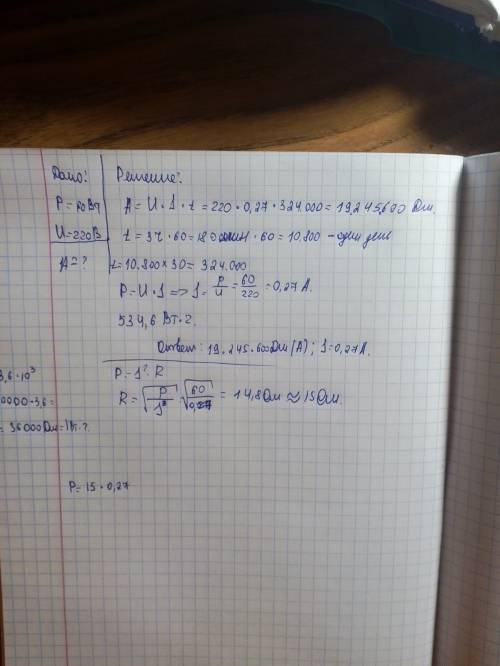 Дано:
Решение:
P = 60 Вт
A = U · J · t = 220 · 0,27 · 324.000 = 19,245,600 Дж.
U = 220 В
t = 3ч · 60 = 180 мин · 60 = 10.800 - один день
A = ?
t = 10.800 × 30 = 324.000
P = U · J => J = P/U = 60/220 = 0,27 А.
534,6 Вт·ч.
Ответ: 19.245.600 Дж (A); J = 0,27 А.
3,6 · 10³
P = J² · R
0000 · 3,6 =
R = √P/J² √60/0,27 = 14,8 Ом ≈ 15 Ом.
= 36000 Дж = 1Вт·ч.
P = 15 · 0,27